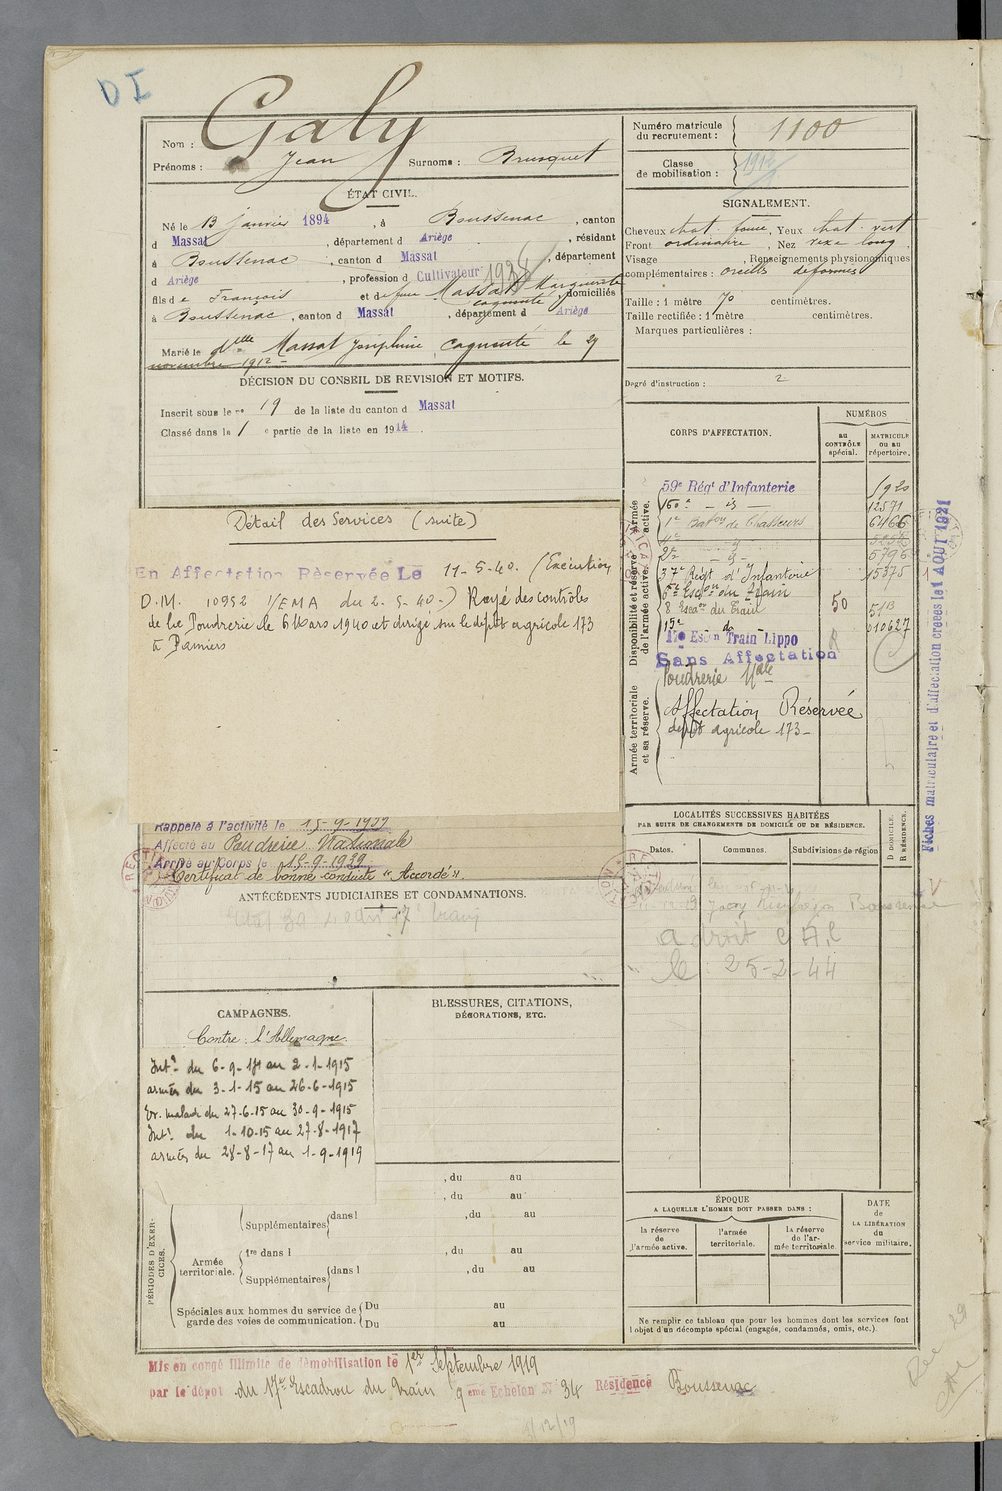 DI
Nom : Galy
Prénoms : Jean Surnoms : Brusquet
Numéro matricule du recrutement : 1100
Classe de mobilisation : 1912
ÉTAT CIVIL.
Né le 13 janvier 1894, à Boussenac, canton
d Massat, département d Ariège, résidant
à Boussenac, canton d Massat, département
d Ariège, profession d Cultivateur 1924
fils de François et de feue Massat Marguerite, domiciliés
cagouste
à Boussenac, canton d Massat, département d Ariège
Marié le dlle Massat Joséphine, le 29
novembre 1912
SIGNALEMENT.
Cheveux chat. foncé, Yeux chat. vert
Front ordinaire, Nez vexe long,
Visage , Renseignements physionomiques
complémentaires : oreilles déformées
Taille : 1 mètre 70 centimètres.
Taille rectifiée : 1 mètre centimètres.
Marques particulières :
Degré d'instruction : 2
DÉCISION DU CONSEIL DE REVISION ET MOTIFS.
Inscrit sous le no 19 de la liste du canton d Massat
Classé dans la 1 e partie de la liste en 1914.
CORPS D'AFFECTATION.
NUMÉROS
AU CONTRÔLE spécial.
MATRICULE ou au répertoire.
Armée active.
59e Régt d'Infanterie 1920
160e - is - 12571
1er Baton de Chasseurs 6466
5252
2e - is - 5796
Disponibilité et réserve de l'armée active.
37e Régt d'Infanterie 15375
6e Escon du Train
8 Escon du Train 50 5113
15e do 010627
17e Escn Train Lippo
Sans Affectation
Poudrerie Nale
Armée territoriale et sa réserve.
Affectation Réservée
dépôt agricole 173-
Fiches matriculaire et d'affectation créées le 1 AOUT 1921
Détail des Services (suite)
En Affectation Réservée Le 11-5-40. (Exécution
D.M. 10952 1/EMA du 2-5-40-) Rayé des contrôles
de la Poudrerie le 6 Mars 1940 et dirigé sur le dépôt agricole 173
à Pamiers
Rappelé à l'activité le 15-9-1939
Affecté au Poudrerie Nationale
Arrivé au Corps le 15-9-1939
Certificat de bonne conduite "Accordé".
ANTÉCÉDENTS JUDICIAIRES ET CONDAMNATIONS.
LOCALITÉS SUCCESSIVES HABITÉES
PAR SUITE DE CHANGEMENTS DE DOMICILE OU DE RÉSIDENCE.
Dates. Communes. Subdivisions de région
D DOMICILE. R RÉSIDENCE.
a droit C A C
le 25-2-44
CAMPAGNES.
Contre l'Allemagne.
Intr du 6-9-14 au 2-1-1915
armées du 3-1-15 au 26-6-1915
Ev. malade du 27-6-15 au 30-9-1915
Intr du 1-10-15 au 27-8-1917
armées du 28-8-17 au 1-9-1919
BLESSURES, CITATIONS,
DÉCORATIONS, ETC.
, du au
, du au
PÉRIODES D'EXERCICES.
Supplémentaires dans l , du au
Armée territoriale.
1re dans l , du au
Supplémentaires dans l , du au
Spéciales aux hommes du service de garde des voies de communication. Du au
Du au
ÉPOQUE
A LAQUELLE L'HOMME DOIT PASSER DANS :
la réserve de l'armée active.
l'armée territoriale.
la réserve de l'armée territoriale.
DATE de LA LIBÉRATION du service militaire.
Ne remplir ce tableau que pour les hommes dont les services font
l'objet d'un décompte spécial (engagés, condamnés, omis, etc.).
Mis en congé illimité de démobilisation le 1er Septembre 1919
par le dépôt du 17e Escadron du Train 9 eme Echelon No 34 Résidence Boussenac
1/12/19